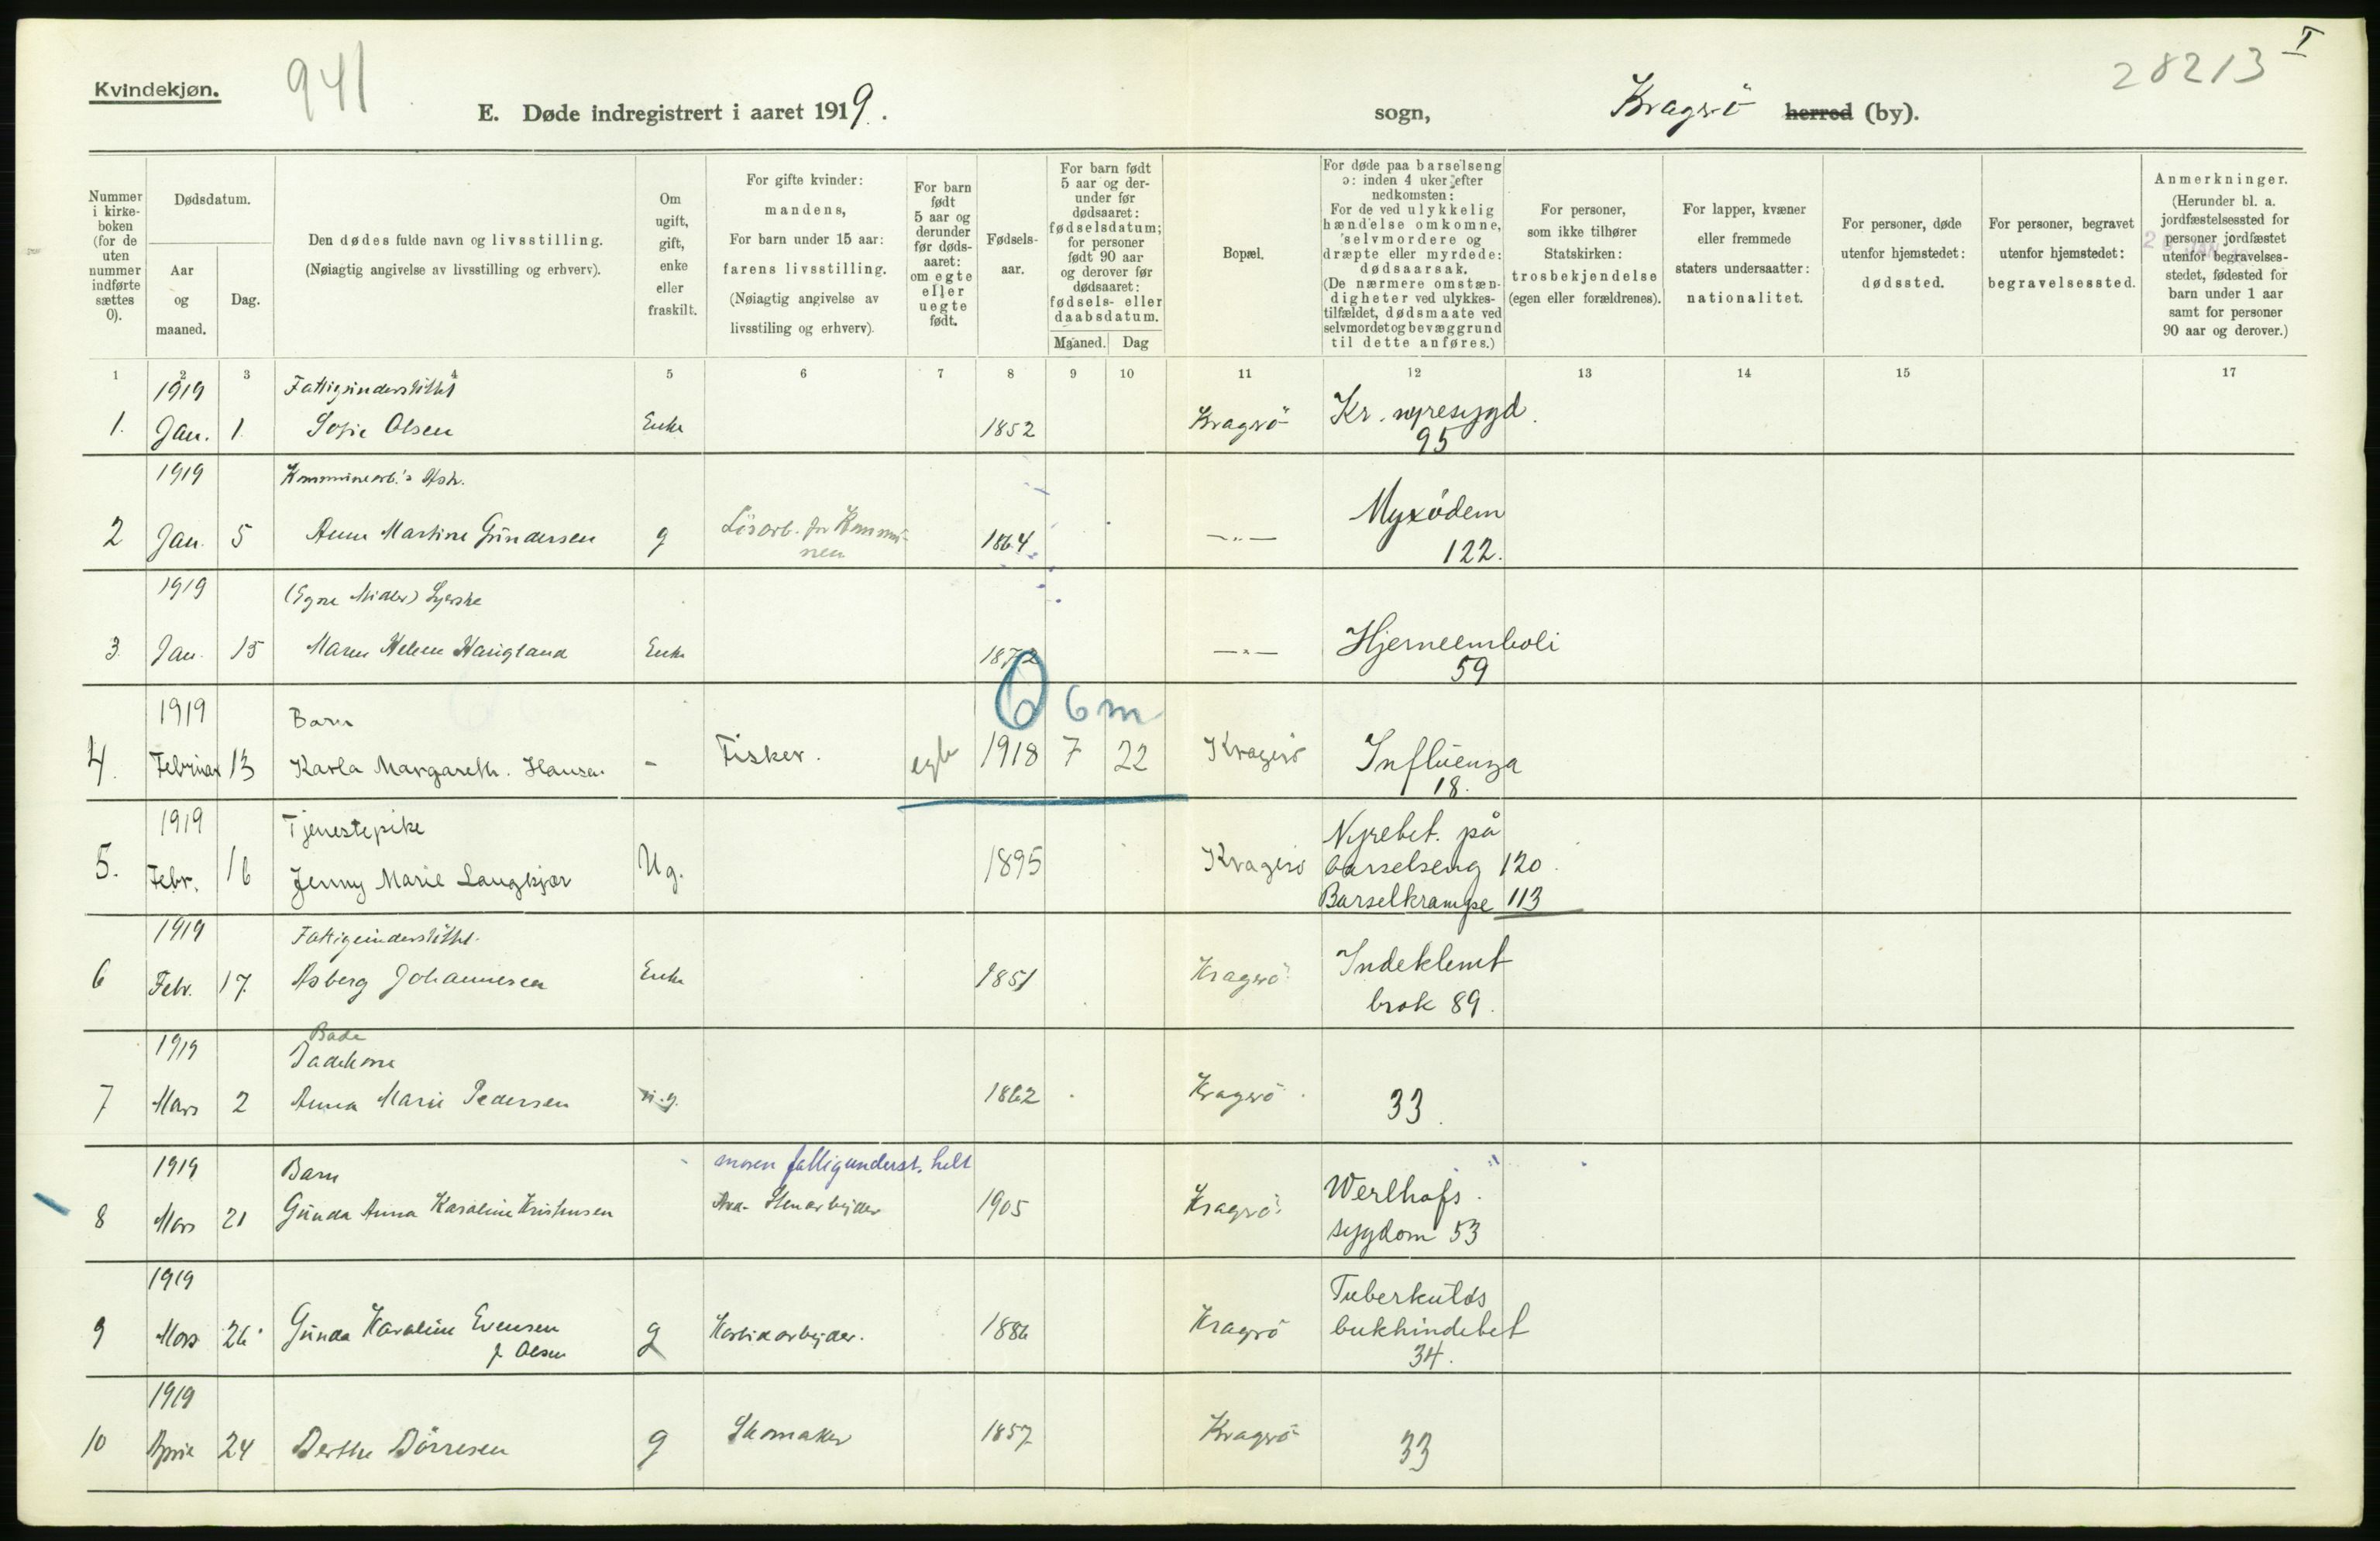 Kvindekjøn.
941
28213 I
E. Døde indregistrert i aaret 1919. sogn, Kragerö herred (by).
Nummer i kirkeboken (for de uten nummer indførte sættes 0).
Dødsdatum.
Aar og maaned.
Dag.
Den dødes fulde navn og livsstilling.
(Nøiagtig angivelse av livsstilling og erhverv).
Om ugift, gift, enke eller fraskilt.
For gifte kvinder: mandens, For barn under 15 aar: farens livsstilling. (Nøiagtig angivelse av livsstiling og erhverv).
For barn født 5 aar og derunder før dødsaaret: om egte eller uegte født.
Fødselsaar.
For barn født 5 aar og derunder før dødsaaret: fødselsdatum; for personer født 90 aar og derover før dødsaaret: fødsels- eller daabsdatum.
Maaned. Dag
Bopæl.
For døde paa barselseng ɔ: inden 4 uker efter nedkomsten: For de ved ulykkelig hændelse omkomne, selvmordere og dræpte eller myrdede: dødsaarsak. (De nærmere omstændigheter ved ulykkestilfældet, dødsmaate ved selvmordet og bevæggrund til dette anføres.)
For personer, som ikke tilhører Statskirken: trosbekjendelse (egen eller forældrenes).
For lapper, kvæner eller fremmede staters undersaatter: nationalitet.
For personer, døde utenfor hjemstedet: dødssted.
For personer, begravet utenfor hjemstedet: begravelsessted.
Anmerkninger. (Herunder bl. a. jordfæstelsessted for personer jordfæstet utenfor begravelsesstedet, fødested for barn under 1 aar samt for personer 90 aar og derover.)
1 2 3 4 5 6 7 8 9 10 11 12 13 14 15 17
1919 Fattigunderstöttet
1. Jan. 1. Sofie Olsen Enke 1852 Kragerö Kr. nyresygd. 95
1919 Kommunearb.'s Hstr.
2 Jan. 5 Anne Martine Gundersen g Lösarb. for Kommunen 1864 —„— Myxödem 122.
1919 (Egne Midler)
3 Jan. 15 Maren Helene Enke 1872 —„— Hjerneemboli 59
1919 Barn 6 6 m
4. Februar 13 Karla Margareth. Hansen - Fisker. egte 1918 7 22 Kragerö Influenza 18.
1919 Tjenestepike
5. Febr. 16 Jenny Marie Langkjær Ug. 1895 Kragerö Nyrebet. på barselseng 120. Barselkrampe 113
1919 Fattigunderstöttet.
6 Febr. 17. Asberg Johannesen Enke 1851 Kragerö Indeklemt brok 89.
1919 Bade
Badekone
7 Mars 2 Anna Marie Pedersen u.g. 1862 Kragerö 33.
1919 Barn moren fattigunderst. helt
8 Mars 21 Gunda Anna Karoline Kristensen Stenarbejder 1905 Kragerö Werlhofs sygdom 53
1919
9 Mars 26. Gunda Karoline Evensen f. Olsen g Karbidarbejder. 1886 Kragerö Tuberkulös bukhindebet 34.
1919
10 April 24 Berthe Dörresen g Skomaker 1857 Kragerö 33